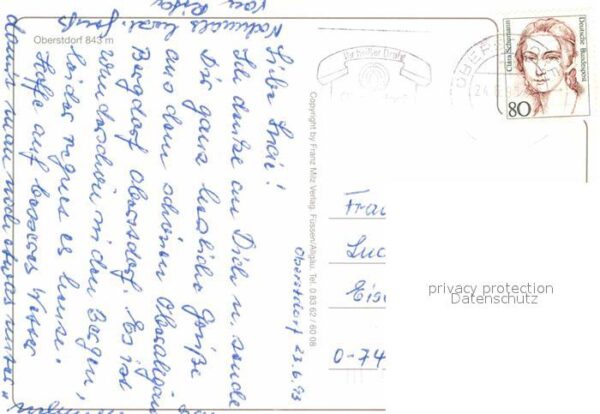 Oberstdorf 843 m
Oberstdorf 23.6.93
Liebe Luzie!
Ich denke an Dich u. sende
Dir ganz herzliche Grüße
aus dem schönen Oberallgäu
Bergdorf Oberstdorf. Es ist
wunderschön in den Bergen,
leider regnet es heute.
Hoffe auf besseres Wetter
damit man noch etwas unter-
Nochmals herzl. Gruß
von
Copyright by Franz Milz Verlag, Füssen/Allgäu. Tel. 0 83 62 / 60 08
Clara Schumann
Deutsche Bundespost
80
Frau
Luc
Eis
0-74
privacy protection
Datenschutz